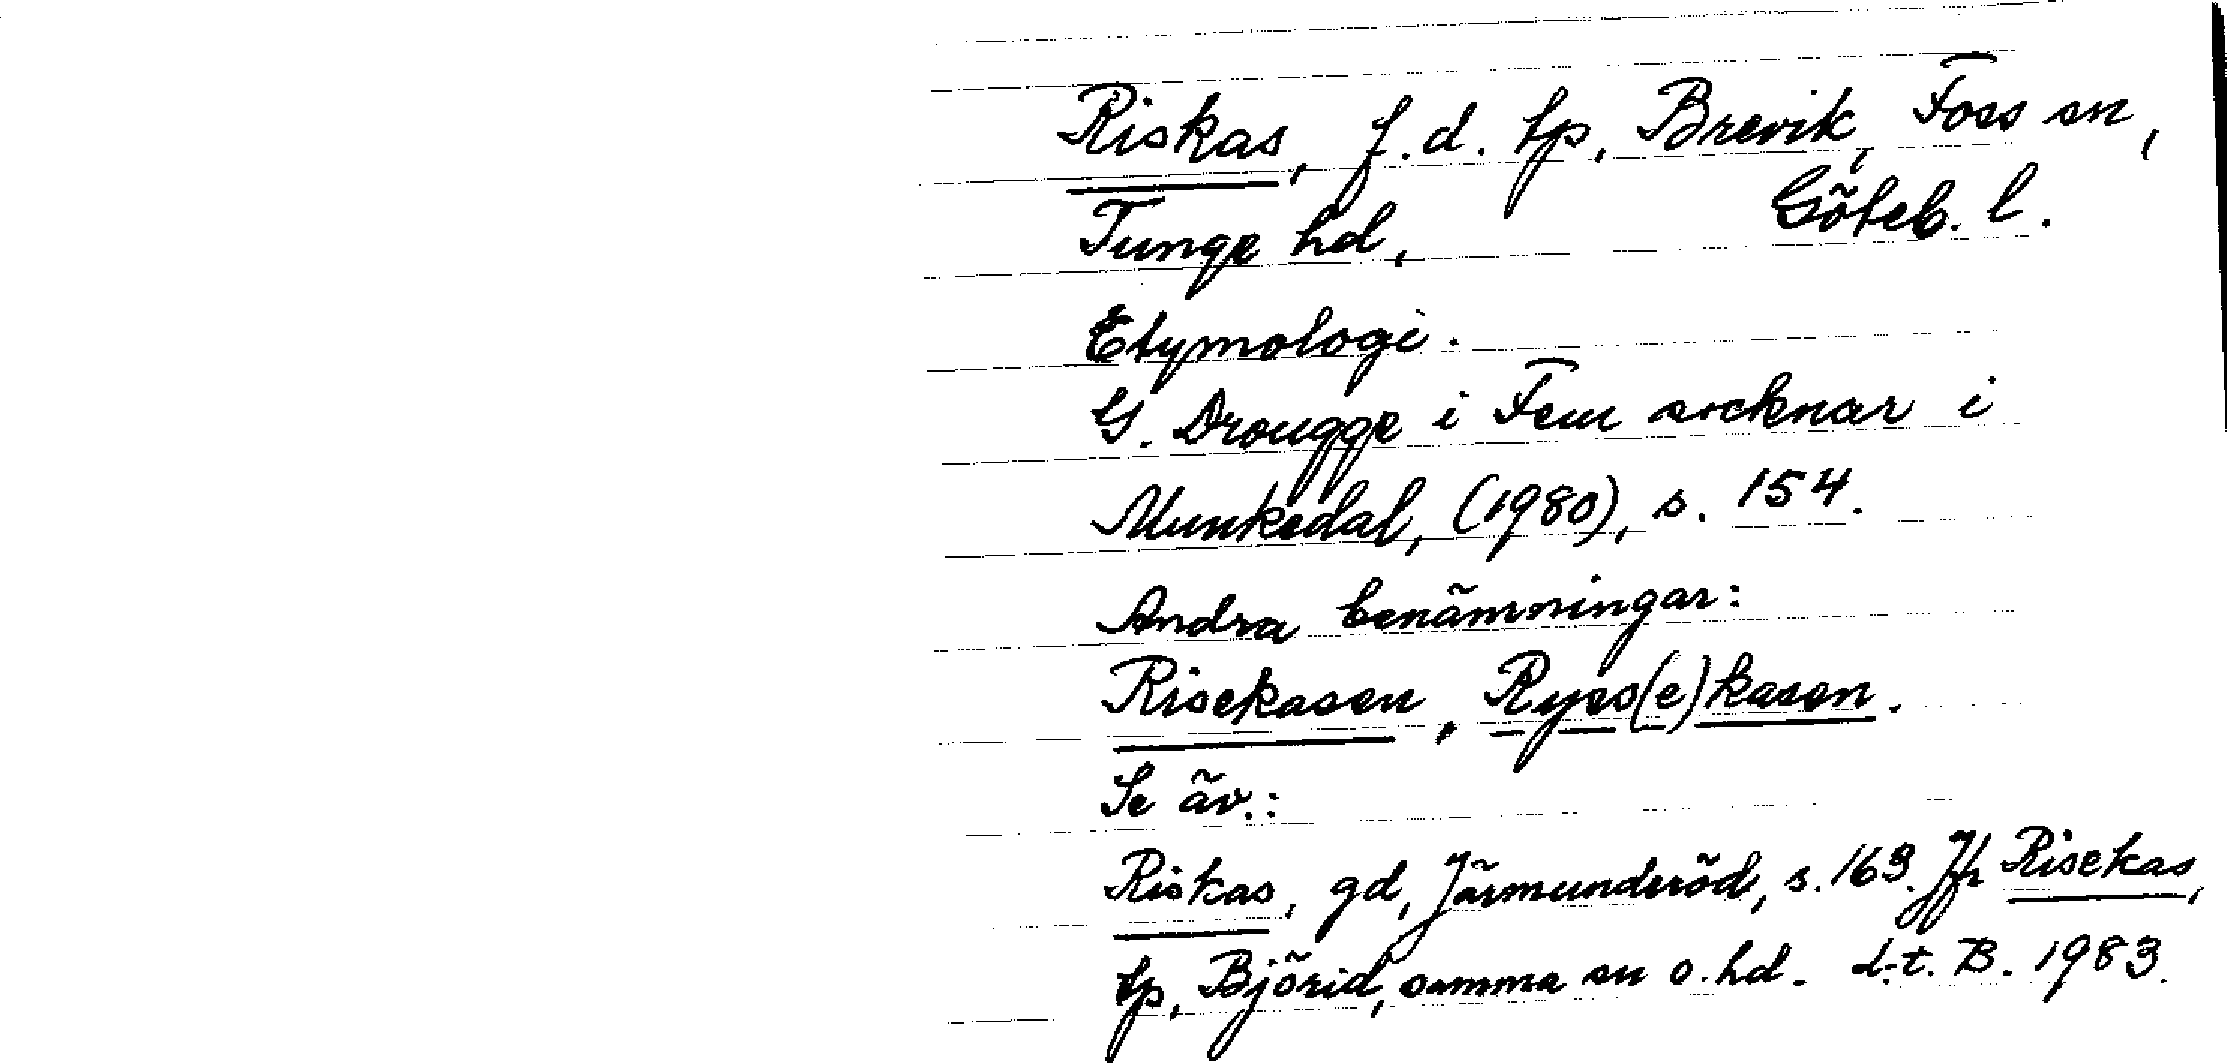 Riskas, f.d. tp, Brevik, Foss sn,
Tunge hd, Göteb. l.
Etymologi.
G. Drougge i Fem socknar i
Munkedal, (1980), s. 154.
Andra benämningar:
Risekasen, Ryss(e)kasen.
Se äv.:
Riskas, gd, Järmunderöd, s. 163. Jfr Risekas,
tp, Björid, samma sn o. hd. d.t. B. 1983.